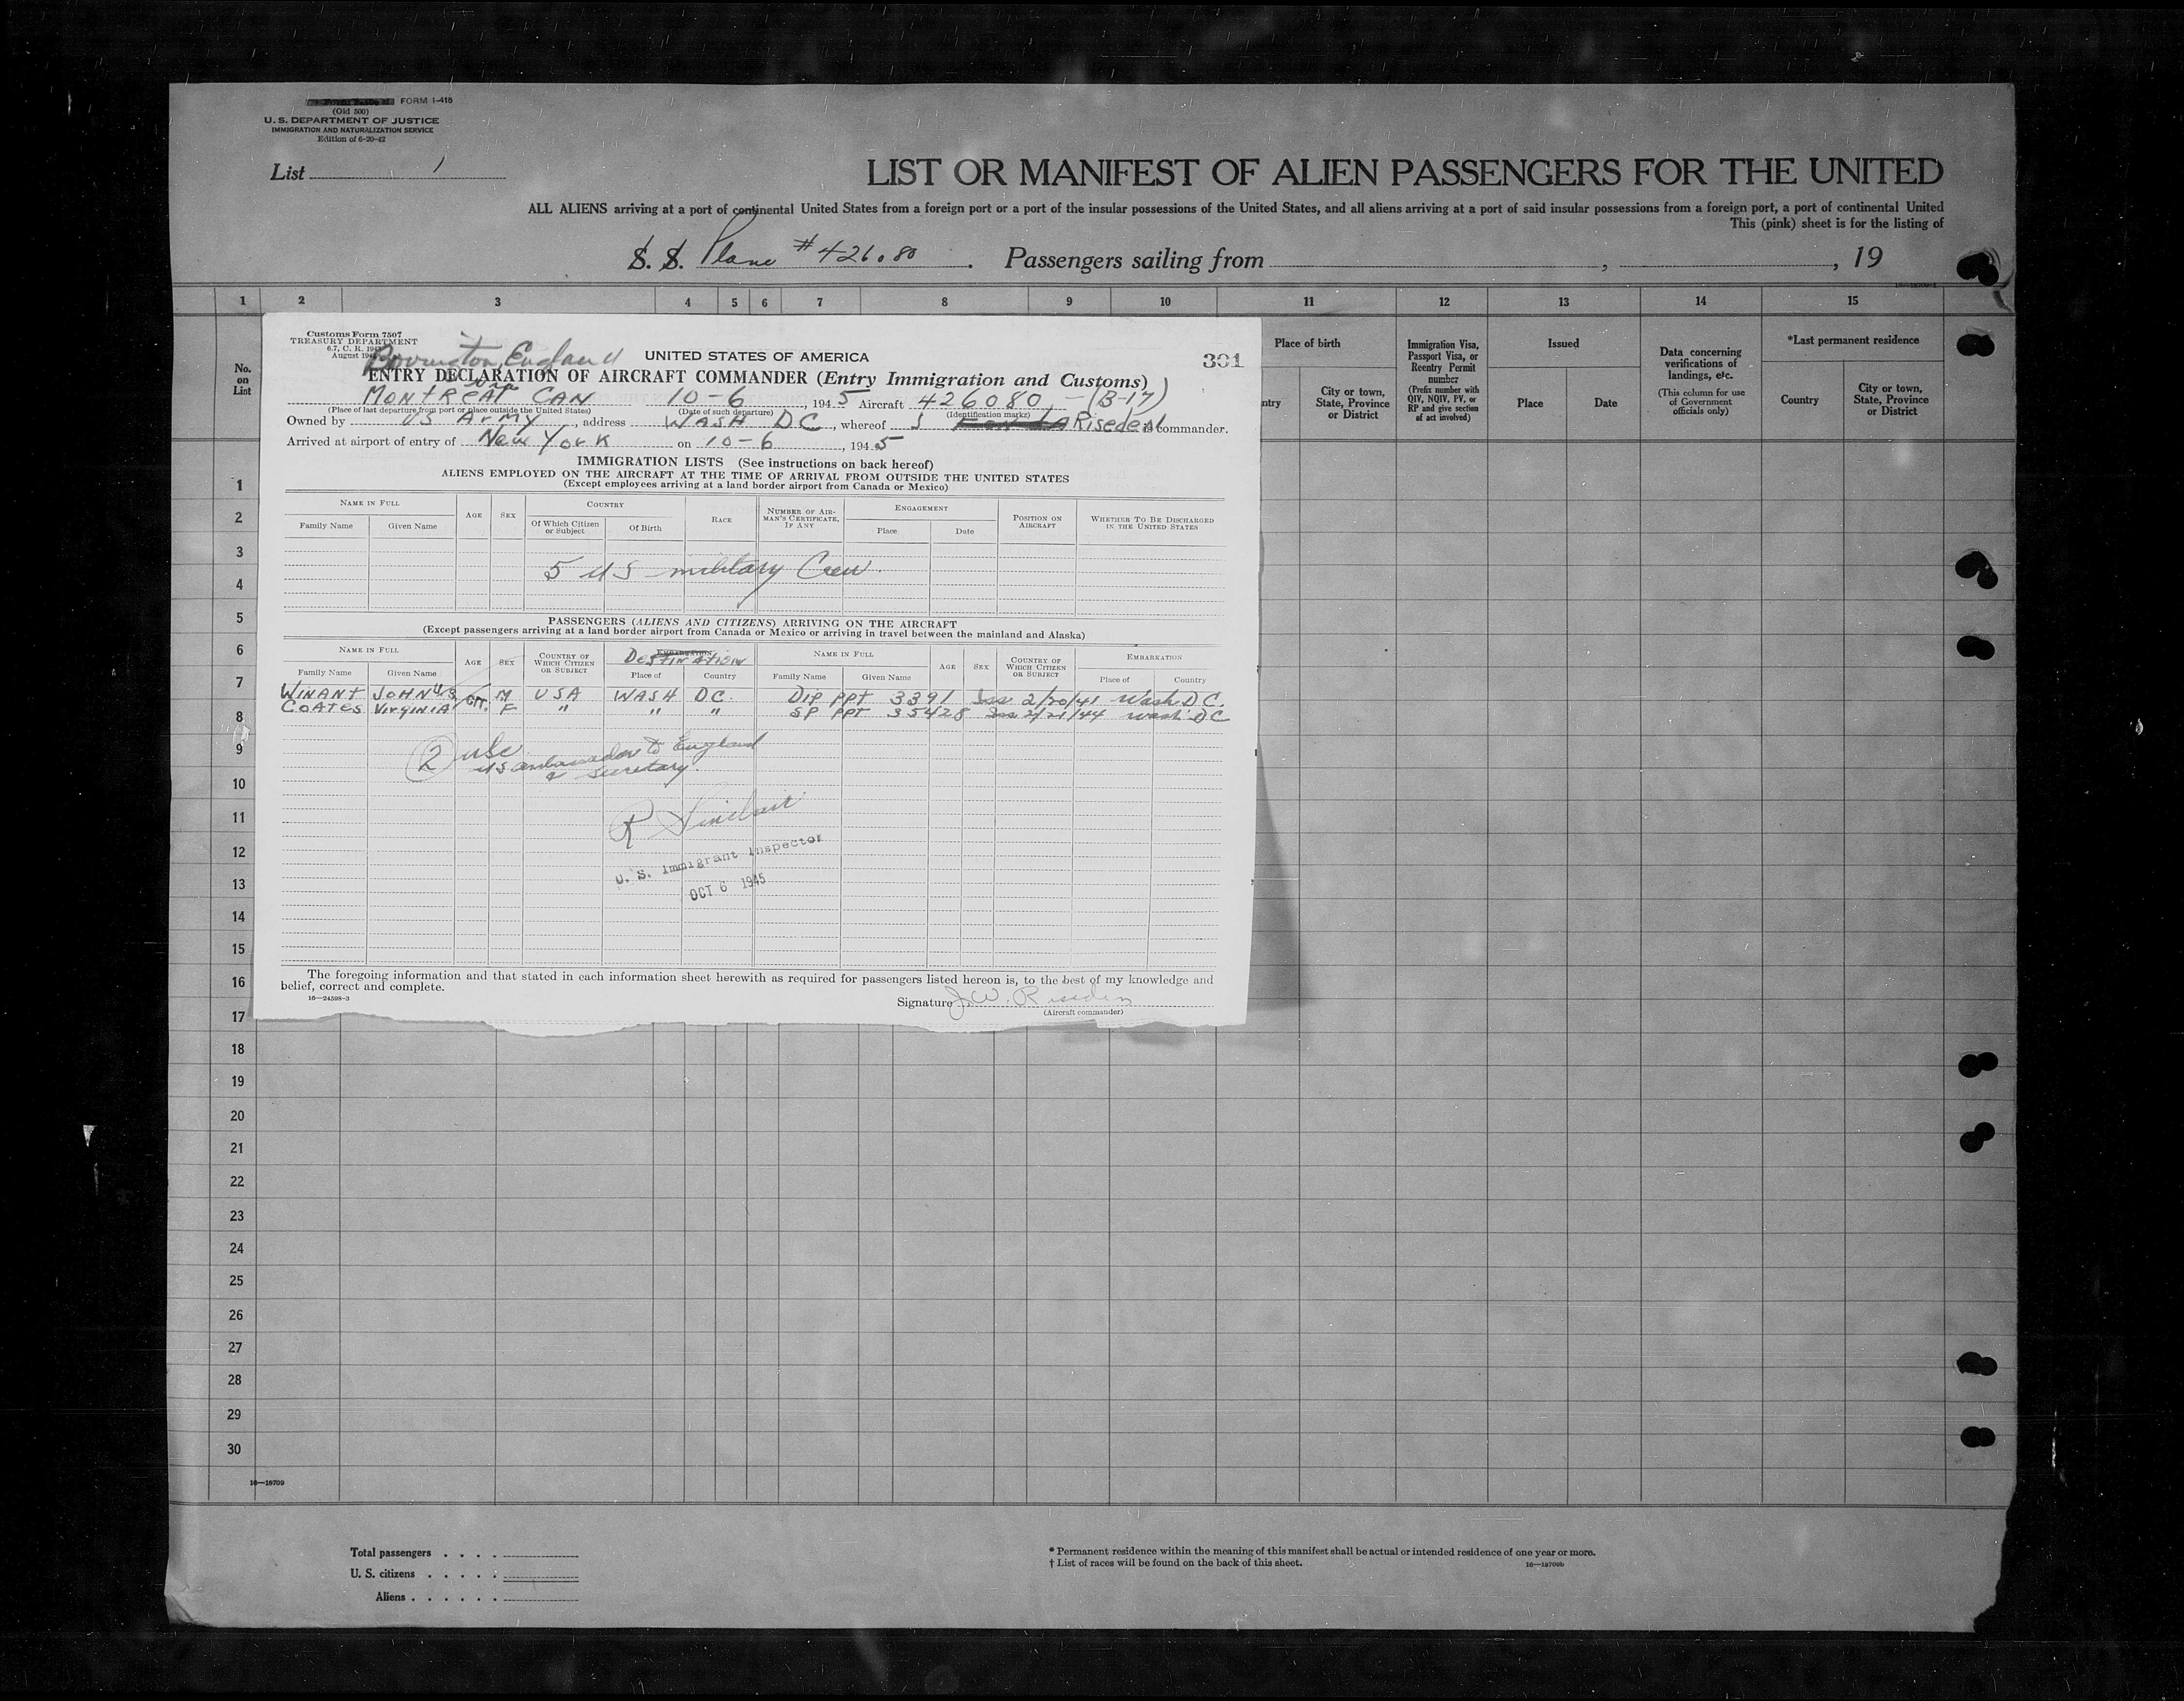 FORM I-415
(Old 500)
U. S. DEPARTMENT OF JUSTICE
IMMIGRATION AND NATURALIZATION SERVICE
Edition of 6-20-42
List 1
LIST OR MANIFEST OF ALIEN PASSENGERS FOR THE UNITED
ALL ALIENS arriving at a port of continental United States from a foreign port or a port of the insular possessions of the United States, and all aliens arriving at a port of said insular possessions from a foreign port, a port of continental United
This (pink) sheet is for the listing of
S. S. Plane # 426080. Passengers sailing from , , 19
1 2 3 4 5 6 7 8 9 10 11 12 13 14 15
No. on List
Place of birth
City or town, State, Province or District
Immigration Visa, Passport Visa, or Reentry Permit number
(Prefix number with QIV, NQIV, PV, or RP and give section of act involved)
Issued
Place
Date
Data concerning verifications of landings, etc.
(This column for use of Government officials only)
*Last permanent residence
Country
City or town, State, Province or District
Customs Form 7507
TREASURY DEPARTMENT
Bovington, England
UNITED STATES OF AMERICA
301
ENTRY DECLARATION OF AIRCRAFT COMMANDER (Entry Immigration and Customs)
via
MONTREAL CAN 10-6, 1945 Aircraft 426080 - (B-17)
(Place of last departure from port or place outside the United States) (Date of such departure) (Identification marks)
Owned by US ARMY, address WASH DC, whereof J Riseden is commander.
Arrived at airport of entry of New York on 10-6, 1945
IMMIGRATION LISTS (See instructions on back hereof)
ALIENS EMPLOYED ON THE AIRCRAFT AT THE TIME OF ARRIVAL FROM OUTSIDE THE UNITED STATES
(Except employees arriving at a land border airport from Canada or Mexico)
NAME IN FULL
Family Name
Given Name
AGE
SEX
COUNTRY
Of Which Citizen or Subject
Of Birth
RACE
NUMBER OF AIRMAN'S CERTIFICATE, IF ANY
ENGAGEMENT
Place
Date
POSITION ON AIRCRAFT
WHETHER TO BE DISCHARGED IN THE UNITED STATES
5 US military Crew.
PASSENGERS (ALIENS AND CITIZENS) ARRIVING ON THE AIRCRAFT
(Except passengers arriving at a land border airport from Canada or Mexico or arriving in travel between the mainland and Alaska)
NAME IN FULL
Family Name
Given Name
AGE
SEX
COUNTRY OF WHICH CITIZEN OR SUBJECT
EMBARKATION
DESTINATION
Place of
Country
NAME IN FULL
Family Name
Given Name
AGE
SEX
COUNTRY OF WHICH CITIZEN OR SUBJECT
EMBARKATION
Place of
Country
WINANT JOHN US CIT. M USA WASH DC. DIP PPT 3391 Iss 2/20/41 Wash DC.
COATES VIRGINIA F " " " SP PPT 35428 Iss 2/21/44 Wash DC
2 USC
US ambassador to England
& Secretary.
R Sinclair
U. S. Immigrant Inspector
OCT 6 1945
The foregoing information and that stated in each information sheet herewith as required for passengers listed hereon is, to the best of my knowledge and
belief, correct and complete.
16—24598-3
Signature J. W. Riseden
(Aircraft commander)
1
2
3
4
5
6
7
8
9
10
11
12
13
14
15
16
17
18
19
20
21
22
23
24
25
26
27
28
29
30
16—18709
Total passengers . . . .
U. S. citizens . . . . .
Aliens . . . . . .
* Permanent residence within the meaning of this manifest shall be actual or intended residence of one year or more.
† List of races will be found on the back of this sheet.
16—18709b